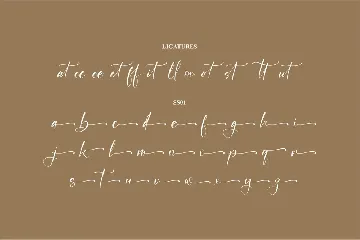 LIGATURES
at cc ee et ff it ll on ot st tt ut
SS01
a b c d e f g h i
j k l m n i p q r
s t u v w x y g